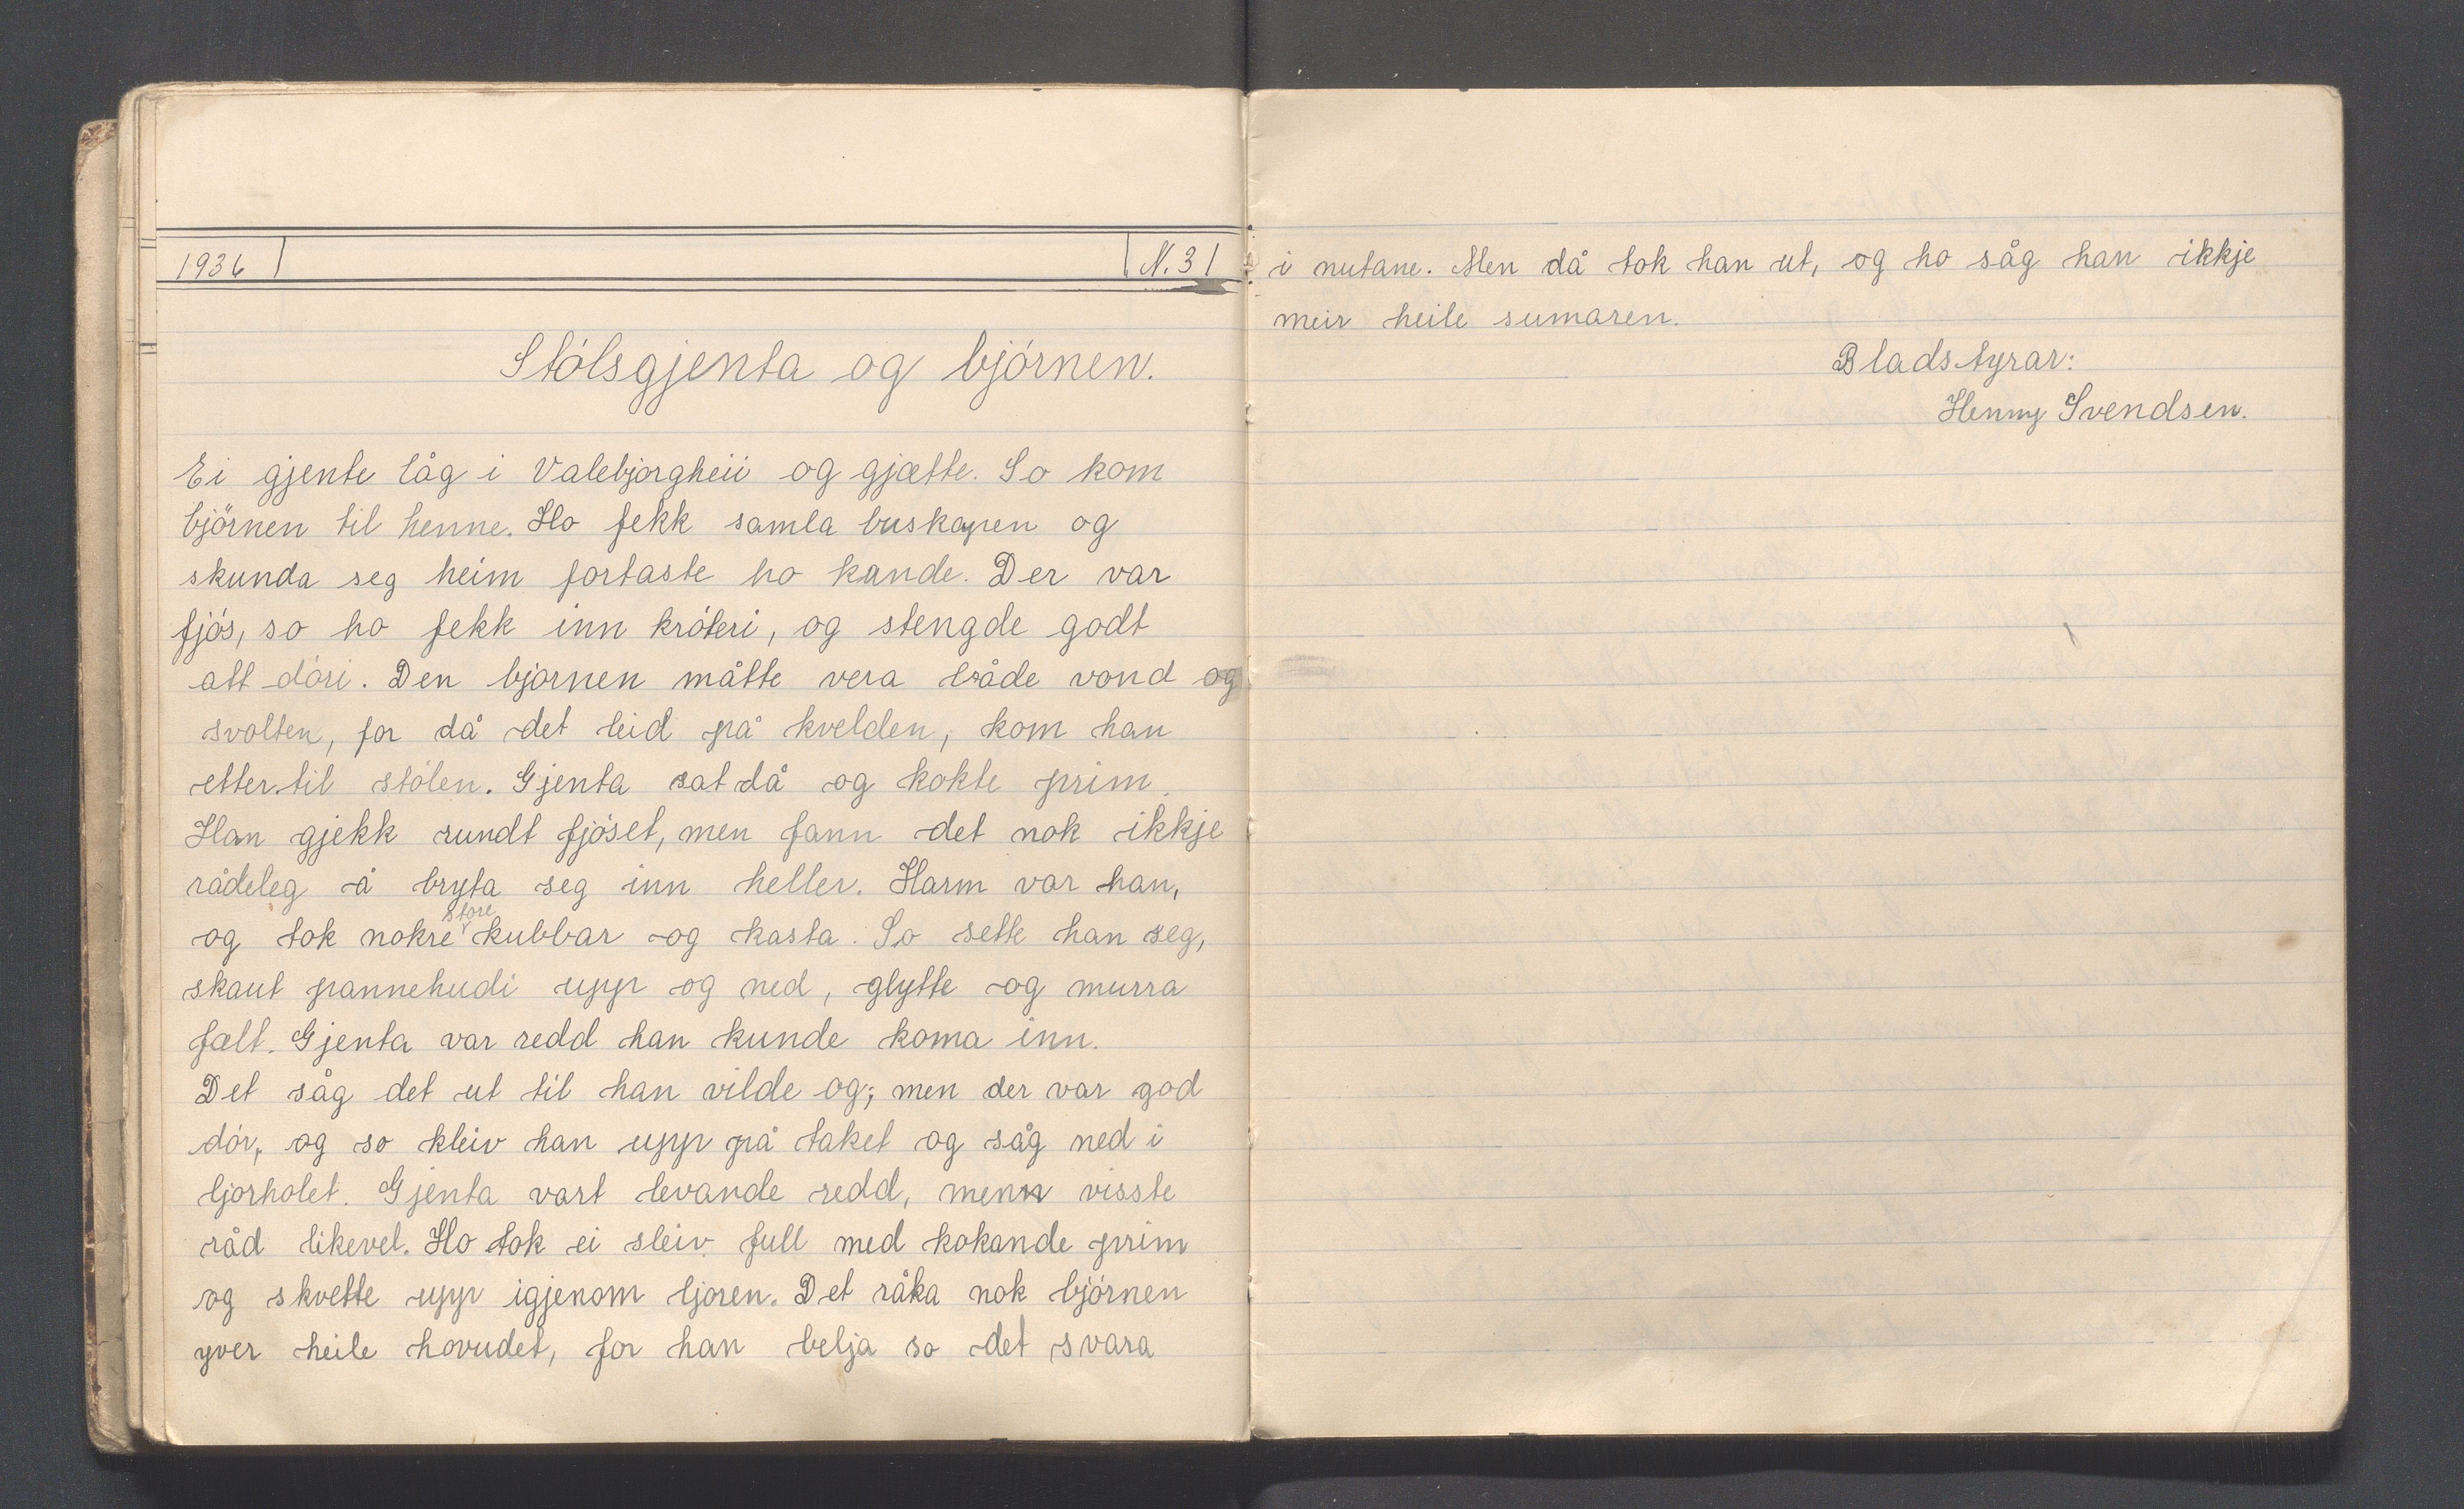 1936
N. 31
Stólsgjenta og bjórnen.
Ei gjente låg i Valebjorgheii og gjætte. So kom
björnen til henne. Ho fekk samla buskapen og
skunda seg heim fortaste ho kande. Der var
fjós, so ho fekk inn króteri, og stengde godt
att dóri. Den bjornen måtte vera både vond og
svolten, for då det leid på kvelden, kom han
etter til stólen. Gjenta sat då og kokte prim.
Han gjekk rundt fjóset, men fann det nok ikkje
rådeleg å bryta seg inn heller. Harm var han,
og tok nokre store kubbar og kasta. So sette han seg,
skaut pannehudi upp og ned, glytte og murra
fælt. Gjenta var redd han kunde koma inn.
Det såg det ut til han vilde og; men der var god
dór, og so kleiv han upp på taket og såg ned i
ljorholet. Gjenta vart levande redd, menn visste
råd likevel. Ho tok ei sleiv full med kokande prim
og skvette upp igjenom ljoren. Det råka nok bjórnen
yver heile hovudet, for han belja so det svara
i nutane. Men då tok han ut, og ho såg han ikkje
meir heile sumaren.
Bladstyrar:
Henny Svendsen.